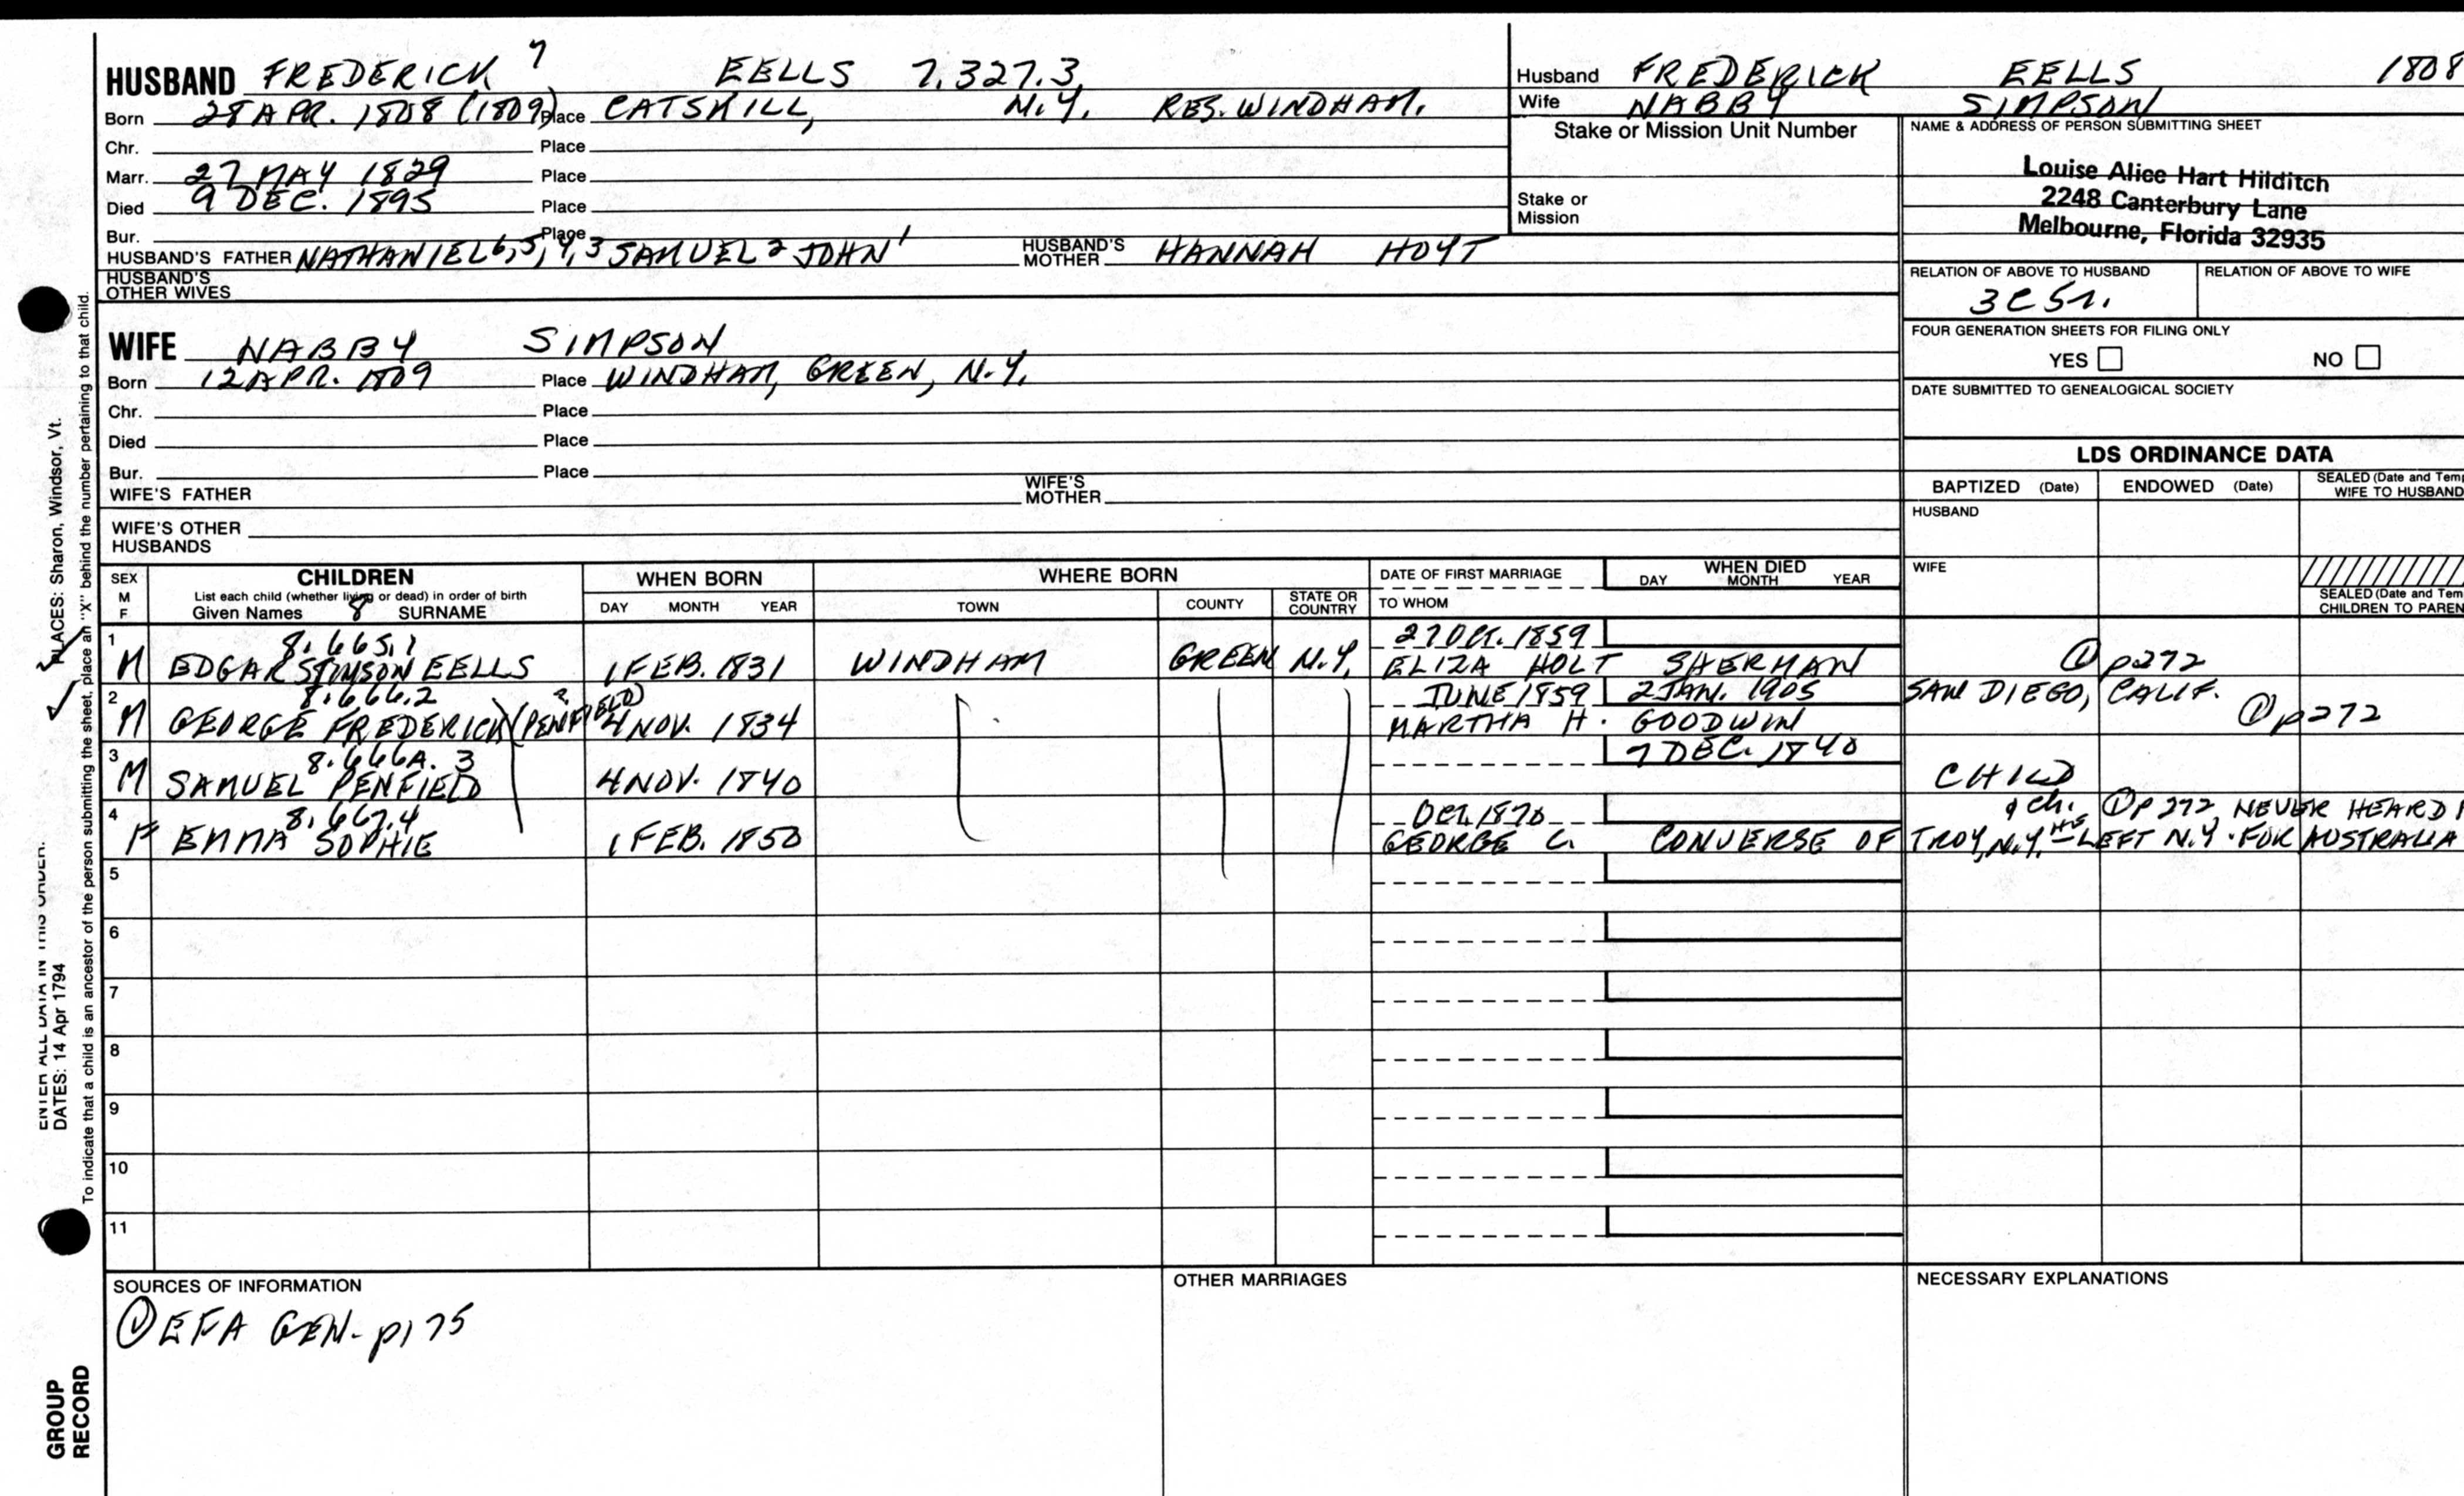 HUSBAND FREDERICK 7 EELLS 7.327.3
Born 28 APR. 1808 (1809) Place CATSKILL, N.Y. RES. WINDHAM.
Chr. Place
Marr. 27 MAY 1829 Place
Died 9 DEC. 1895 Place
Bur. Place
HUSBAND'S FATHER NATHANIEL 6,5,4,3 SAMUEL 2 JOHN 1 HUSBAND'S MOTHER HANNAH HOYT
HUSBAND'S
OTHER WIVES
WIFE NABBY SIMPSON
Born 12 APR. 1809 Place WINDHAM, GREEN, N.Y.
Chr. Place
Died Place
Bur. Place
WIFE'S FATHER WIFE'S MOTHER
WIFE'S OTHER
HUSBANDS
Husband FREDERICK EELLS 1808
Wife NABBY SIMPSON
Stake or Mission Unit Number
Stake or
Mission
NAME & ADDRESS OF PERSON SUBMITTING SHEET
Louise Alice Hart Hilditch
2248 Canterbury Lane
Melbourne, Florida 32935
RELATION OF ABOVE TO HUSBAND RELATION OF ABOVE TO WIFE
3C5r.
FOUR GENERATION SHEETS FOR FILING ONLY
YES NO
DATE SUBMITTED TO GENEALOGICAL SOCIETY
LDS ORDINANCE DATA
BAPTIZED (Date) ENDOWED (Date) SEALED (Date and Temp
WIFE TO HUSBAND
HUSBAND
WIFE
SEALED (Date and Tem
CHILDREN TO PAREN
SEX
M
F
CHILDREN
List each child (whether living or dead) in order of birth
Given Names 8 SURNAME
WHEN BORN
DAY MONTH YEAR
WHERE BORN
TOWN COUNTY STATE OR COUNTRY
DATE OF FIRST MARRIAGE
TO WHOM
WHEN DIED
DAY MONTH YEAR
1 8.665.1 27 Oct. 1859
M EDGAR STIMSON EELLS 1 FEB. 1831 WINDHAM GREEN N.Y. ELIZA HOLT SHERMAN ① p272
2 8.666.2 JUNE 1859 2 JAN. 1905 SAN DIEGO, CALIF.
M GEORGE FREDERICK (PENFIELD) ? 4 NOV. 1834 MARTHA H. GOODWIN ① p272
3 8.666A.3 7 DEC. 1840
M SAMUEL PENFIELD 4 NOV. 1840 CHILD
4 8.667.4 Oct. 1870 9 ch. ① P272, NEVER HEARD
F EMMA SOPHIE 1 FEB. 1850 GEORGE C. CONVERSE OF TROY, N.Y. LEFT N.Y. FOR AUSTRALIA
5
6
7
8
9
10
11
SOURCES OF INFORMATION
① EFA GEN. p175
OTHER MARRIAGES
NECESSARY EXPLANATIONS
PLACES: Sharon, Windsor, Vt.
To indicate that a child is an ancestor of the person submitting the sheet, place an "X" behind the number pertaining to that child.
ENTER ALL DATA IN THIS ORDER:
DATES: 14 Apr 1794
GROUP
RECORD